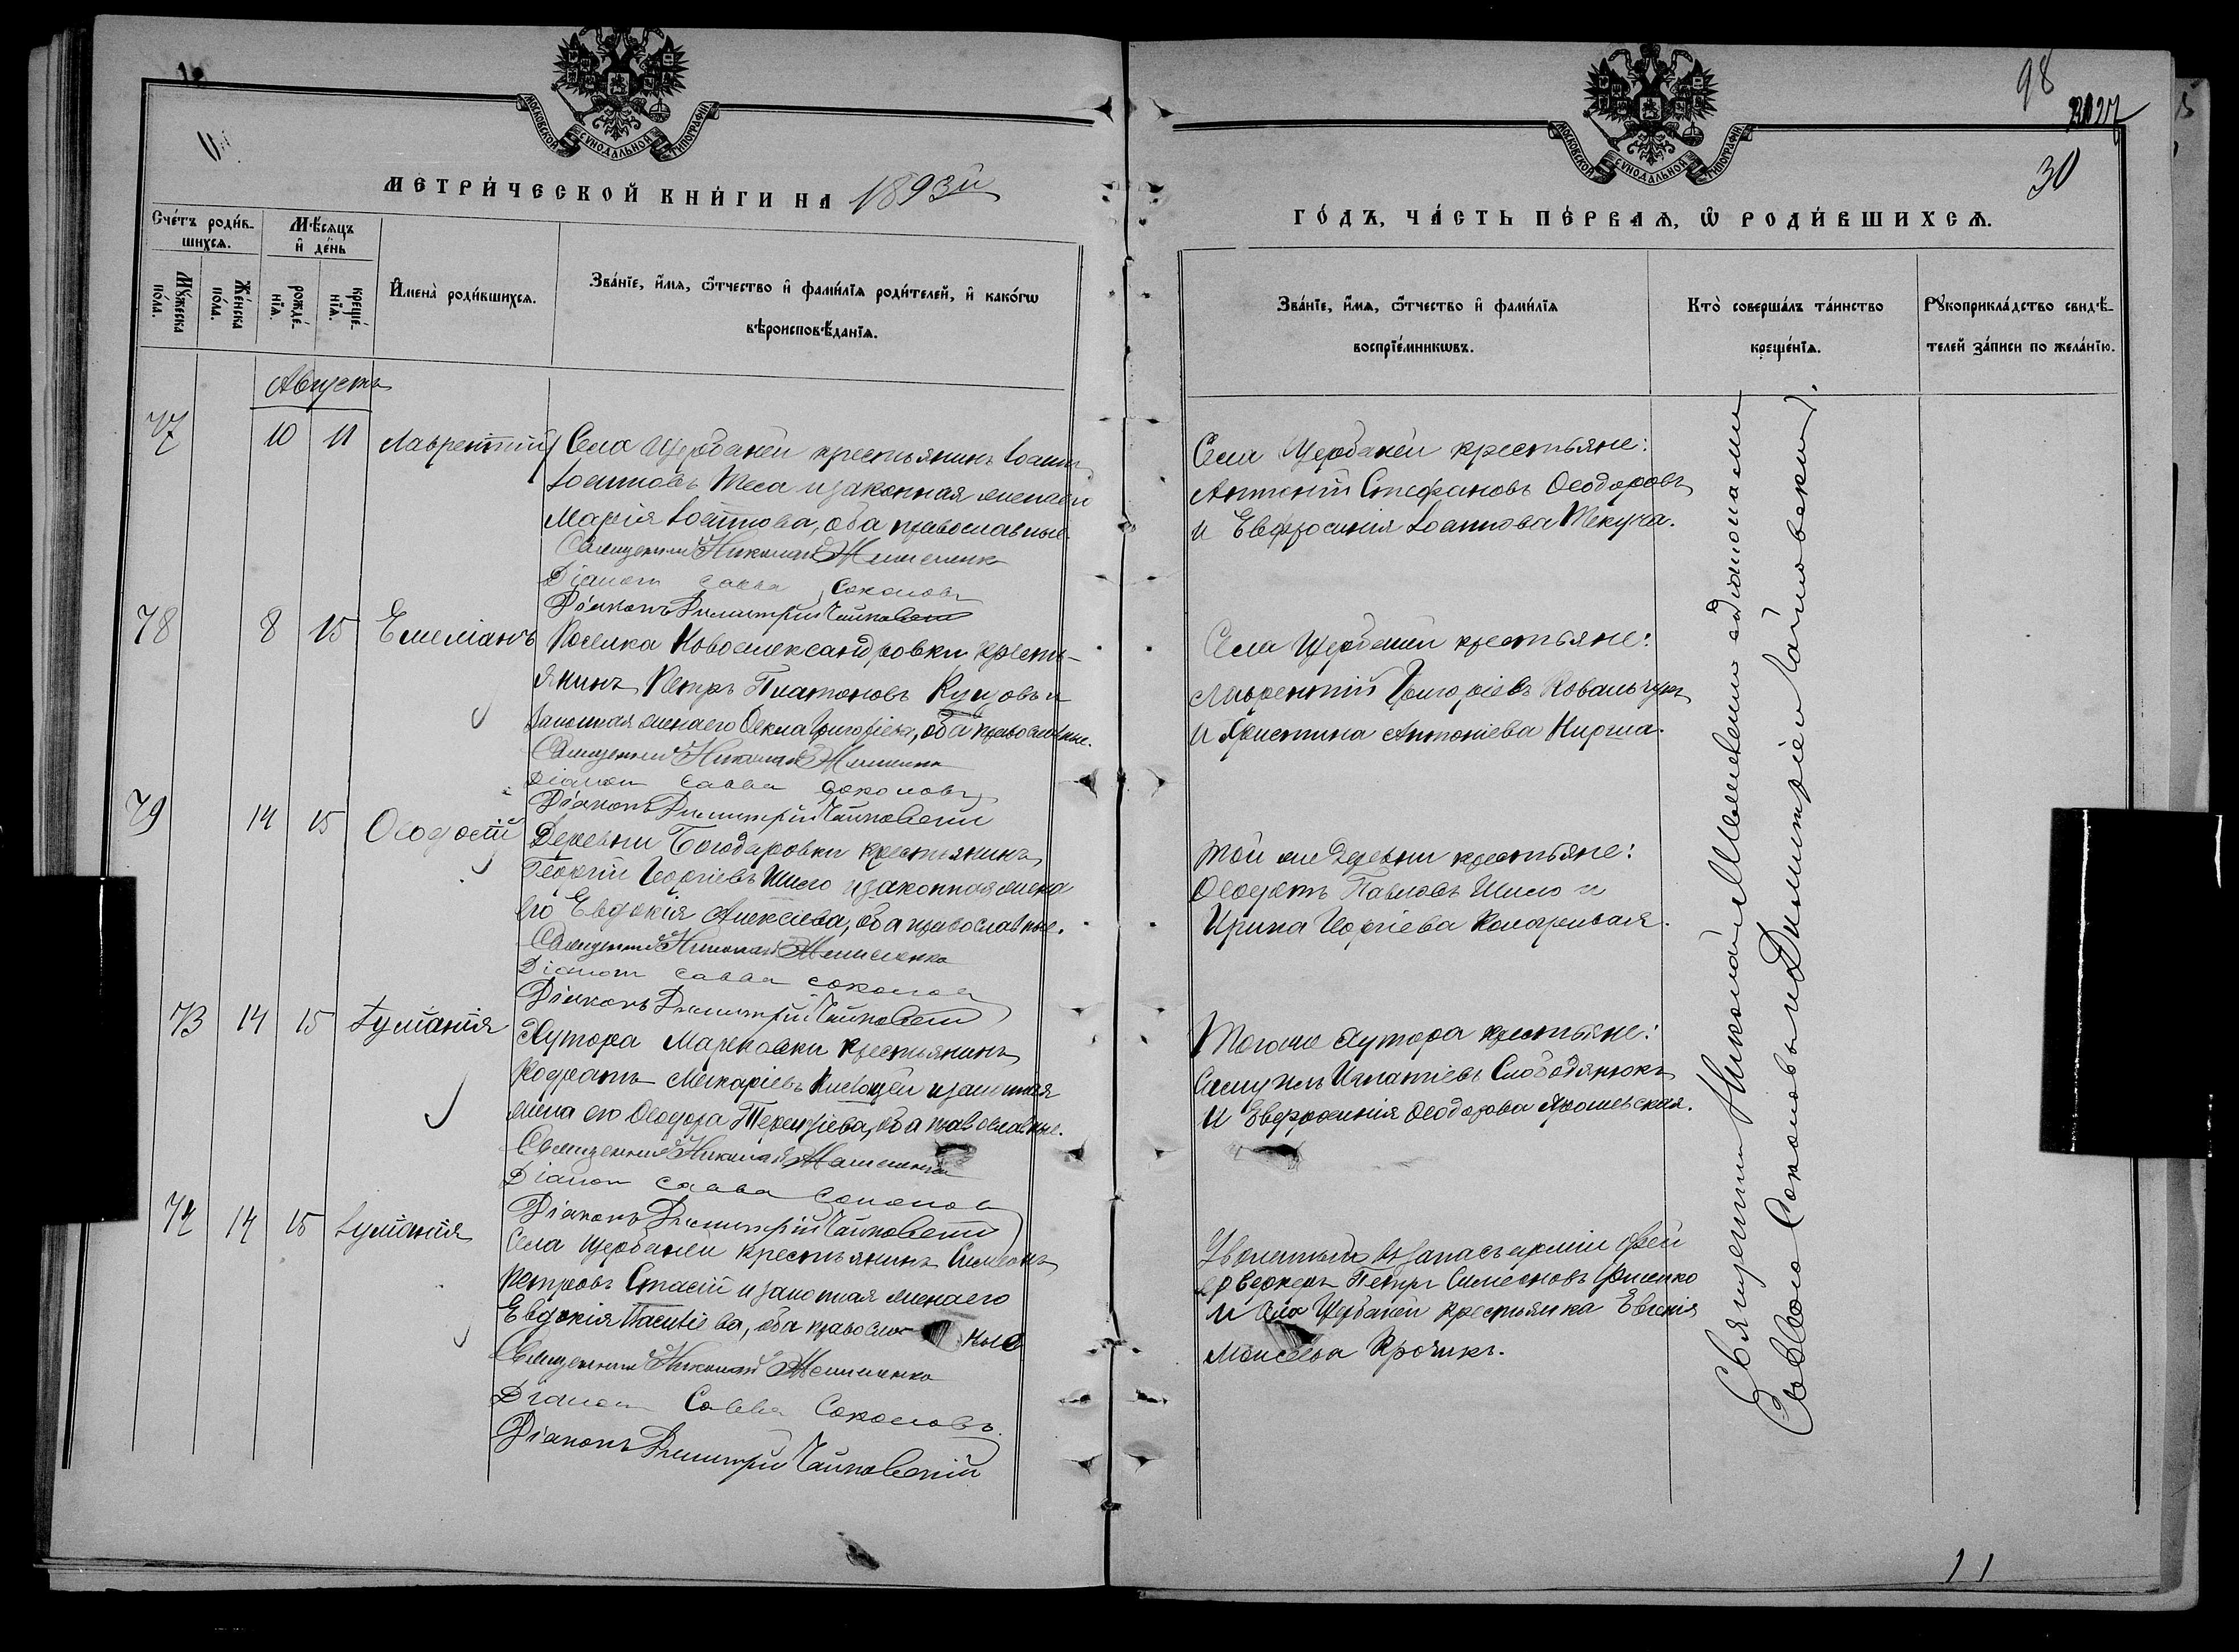 МОСКОВСКОЙ СѴНОДАЛЬНОЙ ТИПОГРАФІИ
МЕТРИ́ЧЕСКОЙ КНИ́ГИ НА 1893й
Сче́тъ роди́в-
шихсѧ.
Мѣ́сяцъ
и҆ де́нь
Мꙋ́жеска
по́ла.
Же́нска
по́ла.
рожде́-
нїѧ.
креще́-
нїѧ.
И҆мена̀ роди́вшихсѧ.
Зва́нїе, и҆́мѧ, ѻ҆́тчество и҆ фами́лїѧ роди́телей, и҆ како́гѡ
вѣроисповѣ́данїѧ.
Августъ
77 10 11 Лаврентій
Села Щербаней крестьянинъ Іоаннъ
Іоанновъ Теса и законная жена его
Марія Іоаннова, оба православные.
Священникъ Николай
Діаконъ Савва Соколовъ
Діаконъ Димитрій Чайковскій
78 8 15 Емеліанъ
Поселка Новоалександровки кресть-
янинъ Петръ Платоновъ Куцовъ и
законная жена его Ѳекла Григоріева, оба православные.
Священникъ Николай
Діаконъ Савва Соколовъ
Діаконъ Димитрій Чайковскій
79 14 15 Ѳеодосій
Деревни Богодаровки крестьянинъ
Георгій Георгіевъ Шило и законная жена
его Евдокія Алексіева, оба православные.
Священникъ Николай
Діаконъ Савва Соколовъ
Діаконъ Димитрій Чайковскій
73 14 15 Іуліанія
Хутора Марковки крестьянинъ
Кодратъ Макаріевъ и законная
жена его Ѳеодора Терентіева, оба православные.
Священникъ Николай
Діаконъ Савва Соколовъ
Діаконъ Димитрій Чайковскій
74 14 15 Іуліанія
Села Щербаней крестьянинъ Симеонъ
Петровъ Стасій и законная жена его
Евдокія, оба православные
Священникъ Николай
Діаконъ Савва Соколовъ.
Діаконъ Димитрій Чайковскій
98
30
МОСКОВСКОЙ СѴНОДАЛЬНОЙ ТИПОГРАФІИ
ГО́ДЪ, ЧА́СТЬ ПЕ́РВАѦ, Ѡ҆ РОДИ́ВШИХСѦ.
Зва́нїе, и҆́мѧ, ѻ҆́тчество и҆ фами́лїѧ
воспрїе́мникѡвъ.
Кто̀ соверша́лъ та́инство
креще́нїѧ.
Рꙋкоприкла́дство свидѣ́-
телей за́писи по жела́нїю.
Села Щербаней крестьяне:
Антоній Стефановъ Ѳеодоровъ
и Евфросинія Іоаннова Текуча.
Села Щербаней крестьяне:
Лаврентій Григоріевъ Ковальчукъ
и Христина Антоніева Кирша.
Той же деревни крестьяне:
Ѳеодотъ Павловъ Шило и
Ирина Георгіева
Того же хутора крестьяне:
Самуилъ Игнатіевъ Слободянюкъ
и Евфросинія Ѳеодорова
Уволенный въ запасъ арміи фей-
ерверкеръ Петръ Симеоновъ
и села Щербаней крестьянка Евгенія
Моисеева Крочикъ.
Священникъ Николай съ діаконами
Саввою Соколовымъ и Димитріемъ Чайковскимъ.
11